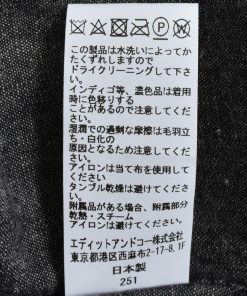 この製品は水洗いによってかたくずれしますので
ドライクリーニングして下さい。
インディゴ等、濃色品は着用時に色移りする
ことがあるので注意してください。
湿潤での過剰な摩擦は毛羽立ち・白化の
原因となるため注意してください。
アイロンは当て布を使用してください。
タンブル乾燥は避けてください。
附属品がある場合、附属部分
乾熱・スチーム
アイロンは避けてください。
エディットアンドコー株式会社
東京都港区西麻布2-17-8.1F
日本製
251